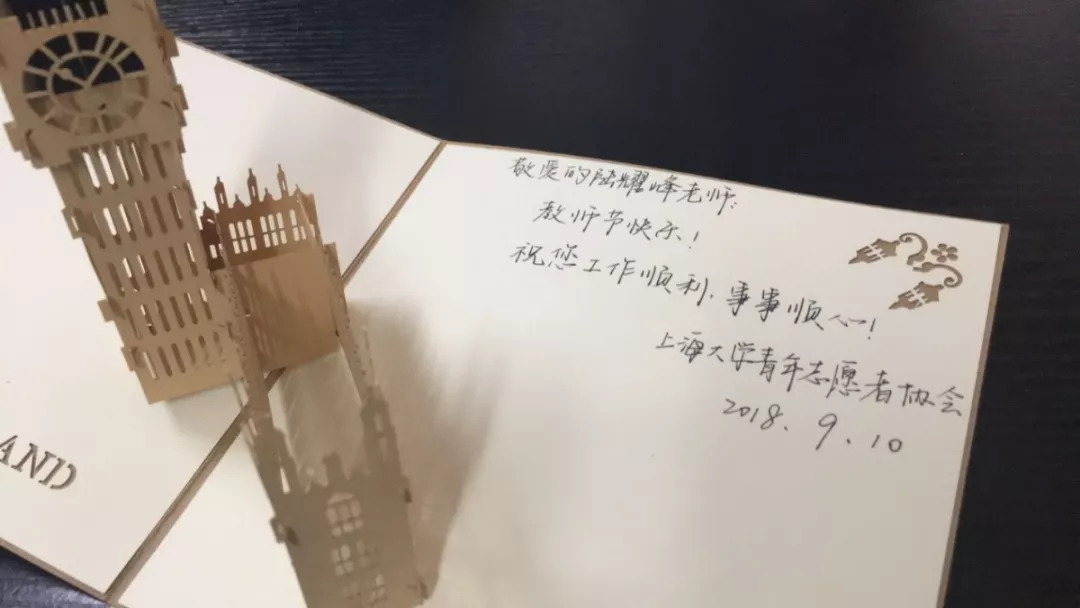 敬爱的陆耀峰老师：
教师节快乐！
祝您工作顺利、事事顺心！
上海大学青年志愿者协会
2018.9.10
AND